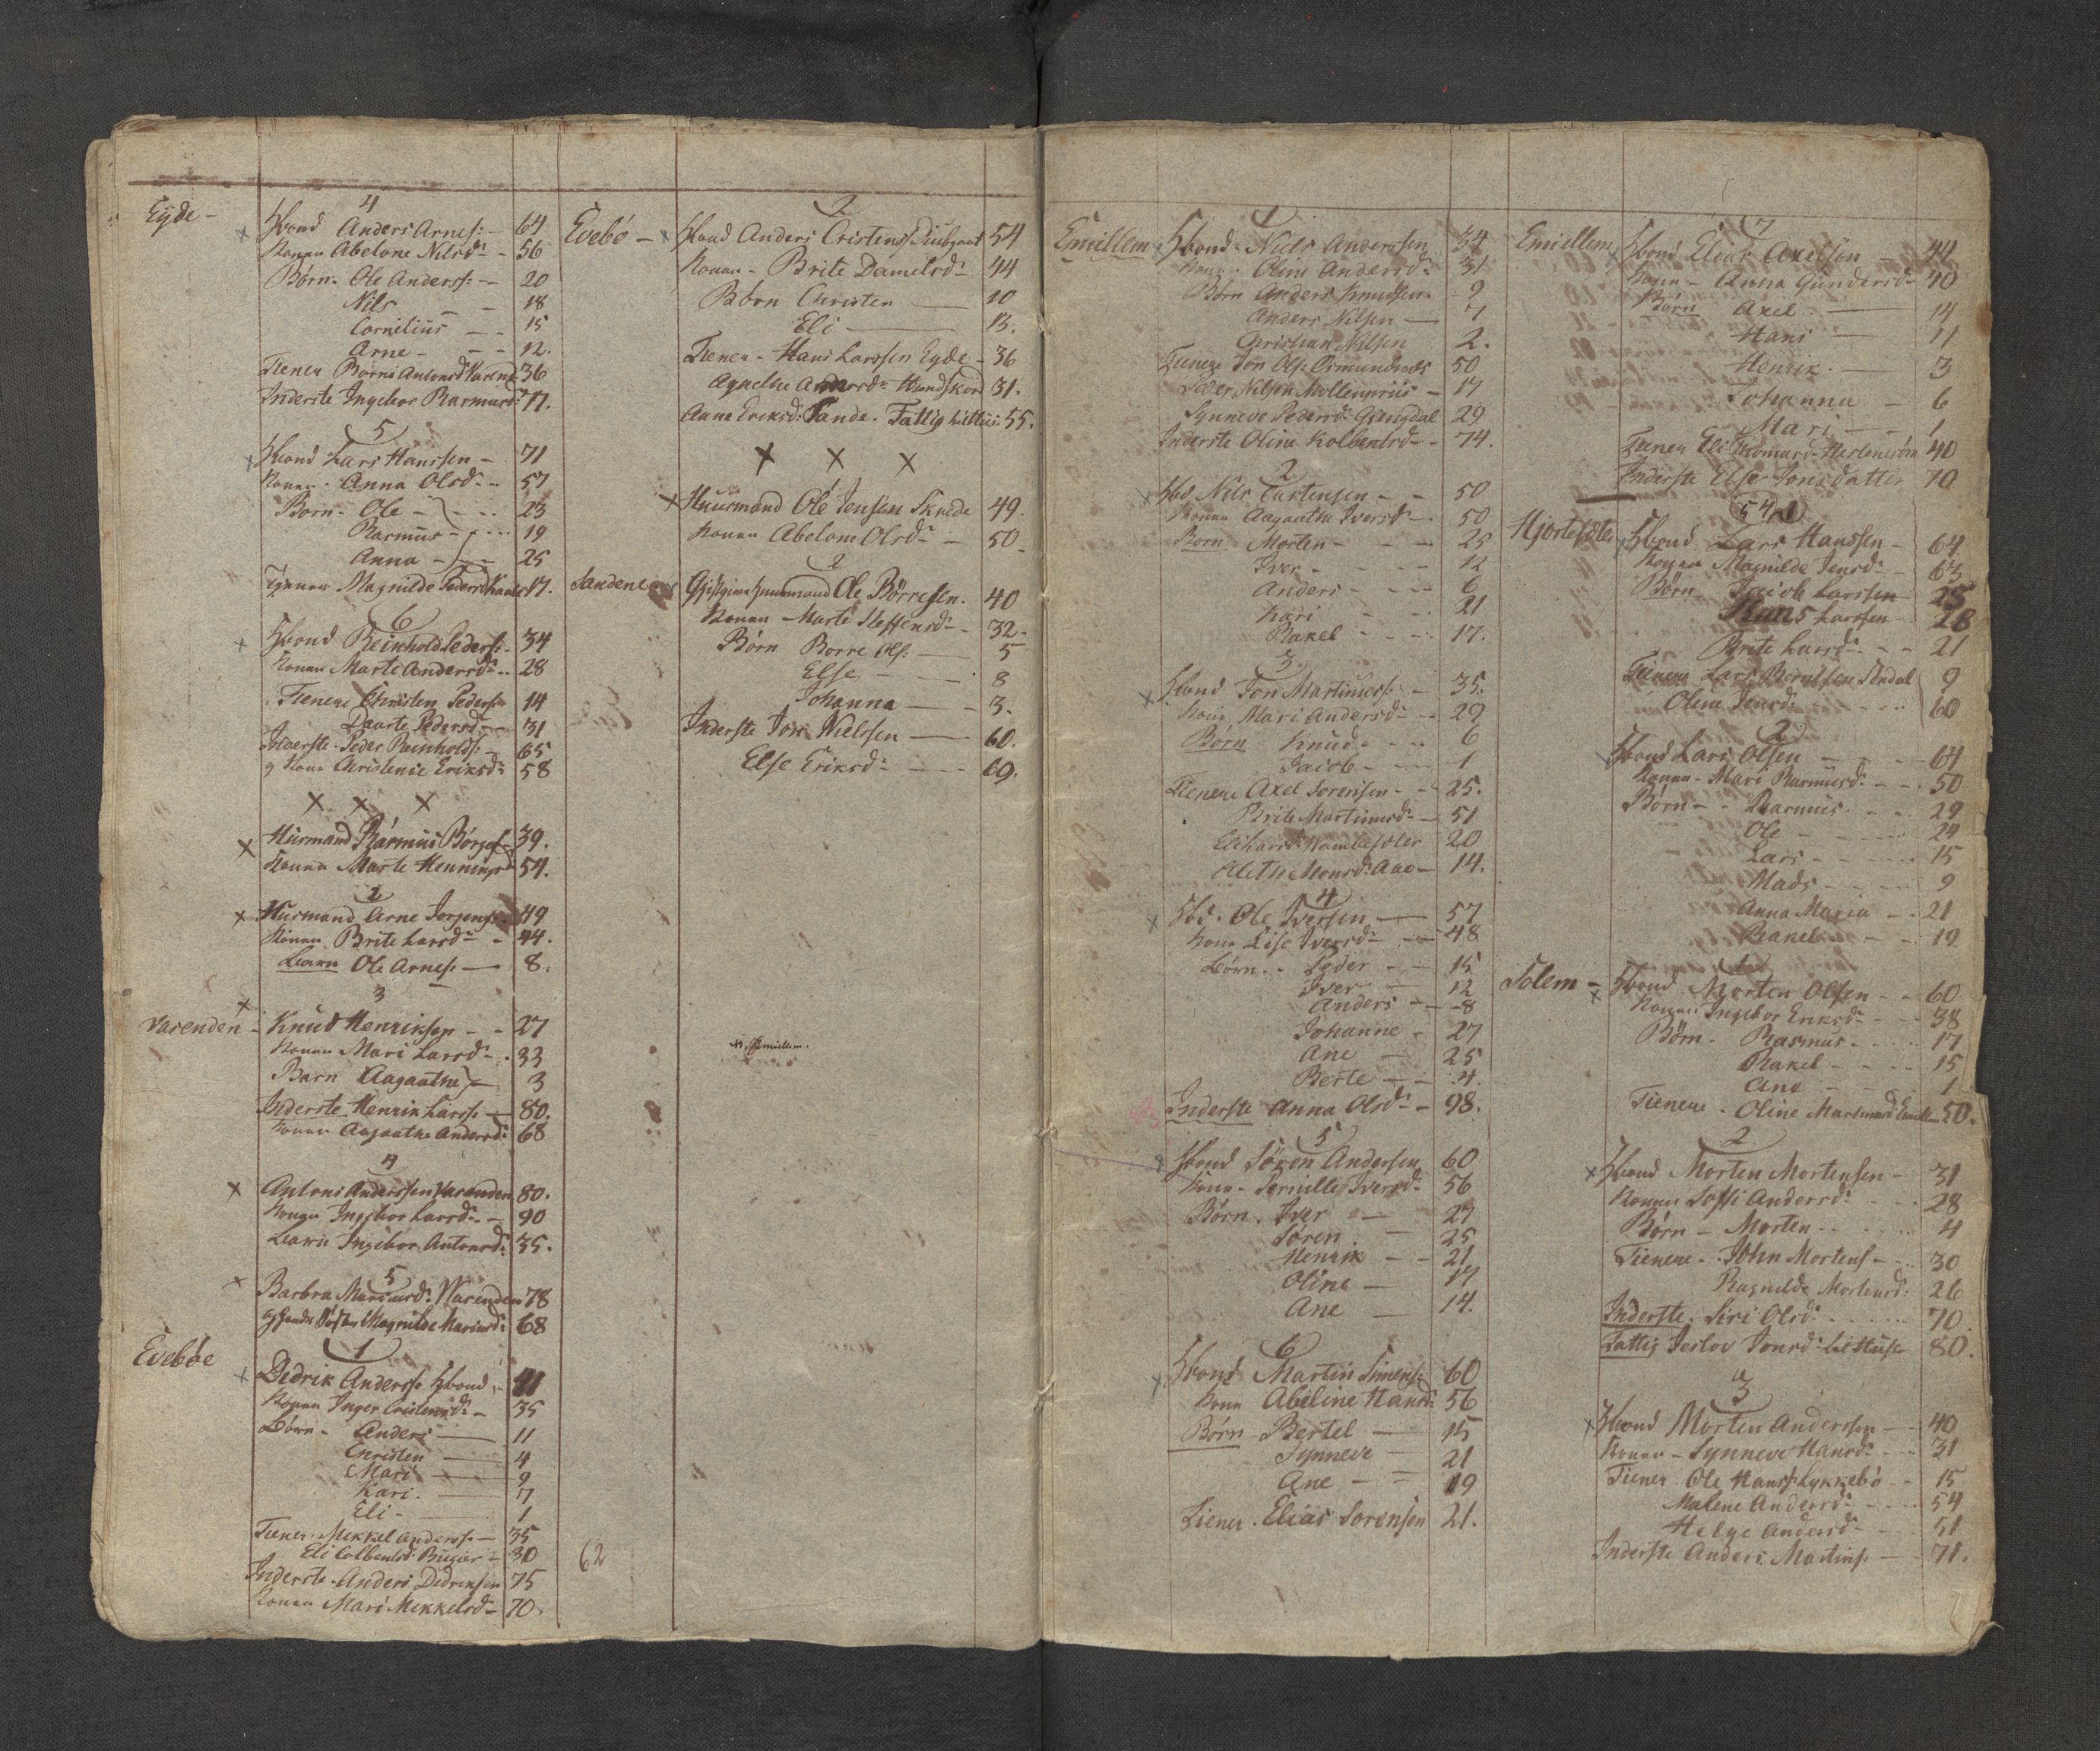 Eyde -
4
Hbond Anders Arnes: - 64
Konen Abelone Nilsd: - 56
Børn - Ole Anderss: - 20
Nils - 18
Cornilius - - 15
Arne - - - 12.
Tiener Børni Antonsd Varend 36
Inderste Ingebor Rasmusd: 17.
5
Hbond Lars Hanssen - 71
Konen - Anna Olsd: - 57
Børn - Ole - - 23
Rasmus - 19
Anna - 25
Magnilde Pedersd 17.
6
Hbond Reinhold Peders: - 34
Konen Marte Andersd: - 28
Tienere Christen Peders: 14
Daarte Pedersd: - 31
Inderste - Peder Reinholds: - 65
og Kone Christense Eriksd: 58
x x x
x Husmand Rasmus Børges - 39.
Konen Marte Hennings 54.
2
x Husmand Arne Jorgens: 49
Konen Brite Larsd: - 44.
Baarn Ole Arnes: - 8.
3
Varenden - Knud Henriksen - - 27
Konen Mari Larsd: - 33
Barn Aagaathe - 3
Inderste Henrik Larss: - 80.
Konen Aagaathe Andersd: 68
4
x Antoni Anderssen Varenden 80.
Konen Ingebor Larsd: - 90
Baarn Ingebor Antonsd: 35.
5
x Barbra Mariusd: Varenden 78
Magnilde Mariusd: 68
Evebøe
1
Dedrik Anderss: Hbond - 41
Konen Inger Cristensd: - 35
Børn - Anders - 11
Christen - 4
Mari - 9
Kari - 7
Eli - 1
Tiener - Mekkel Anderss: - 35
Eli Colbensd - 30
Inderste - Anders Dedriksen 75
Konen Mari Mekkelsd - 70
Evebø -
2
Hbond Anders Cristens: 54
Konen - Brite Danielsd: 44
Børn Christen - 10
Eli - 13.
Tiener - Hans Larssen Eyde - 36
Agnethe Hundskord 31.
Anne Ericksd: Sande - Fattig 55.
x x x
x Huusmand Ole Jensen Sknede 49.
Konen Abelone Olsd: - 50
Sandene
2
Ole Børresen - 40
Konen - Marte Steffensd: - 32 -
Børn Børre Ols: - 5
Else - 8
Johanna - 3.
Inderste Jon Nielssen - 60.
Else Eriksd: - 69.
62
Emillem
1
Hbond - Niels Anderssen 34
Kone - Oline Andersd: 31
Børn Anders Knudssen - 9
Anders Nilsen - 7
Christian Nilsen 2.
Tienere Jon Ols: Osmundnæs 50
Peder Nilsen Mollenpriis - 17
Synneve Pedersd: Giengdal 29
Inderste Oline Kolbensd: - 74.
2
Hbd Nils Turtensen - - 50
Konen Aagaathe Iversd: - 50
Børn Morten - - - 25
Iver - - - 12
Anders - - - 6
Kari - - - 21
Rakel - - - 17.
3
x Hbond Jon Martinuss: - 35.
Kone Mari Andersd: - 29
Børn Knud - - 6
Jacob - - 1
Tienere Axel Sorensen - - 25.
Brite Martinusd: - 51
Vambesøter 20
Aleth Monsd: Aae - 14.
4
Hbd. Ole Iversen - 57
Kone Lise Iversd: - 48
Børn - Peder - - 15
Iver - 12
Anders - - 8
Johanne - 27
Ane - 25
Berte - - 4.
Inderste Anna Olsd: - 98.
5
Hbond Søren Andersen 60
Kone - Pernille Iversd: 56
Børn - Iver - 27
Søren - 25
Henrik - - 21
Oline - 17
Ane - 14.
6
Hbond Martin Simens: 60
Kone Abeline Hansd: 56
Børn - Bertel - 15
Synneve - 21
Ane - - 19
Tiener - Elias Sorensen 21.
Emellem
7
Hbond Elias Axelsøn - 44
Kone - Anna Gundersd: 40
Børn Axel - 14
Hans - 11
Henrik - 3
Johanna - 6
Mari - 1
Tiener Eli Thomasd: Hestenesøen 40
Inderste Else Jonsdatter 70
Hjortesøter
Hbond Lars Hanssen - 64
Konen Magnilde Jensd: - 63
Børn - Jacob Larssen 25
Hans Larssen - 28
Brite Larsd: - - 21
Tienere Lars Berntsen 9
Oline Jensd: - - 60
2
Hbond Lars Olsen - - 64
Konen - Mari Rasmusd: - - 50
Børn - - Rasmus - - 29
Ole - - 24
Lars - - - 15
Mads - - 9
Anna Maria - 21
Rakel - - 19
Solem -
1
x Hbond Morten Olsen - - 60
Konen Ingebor Eriksd: - 38
Børn - Rasmus - - 17
Rakel - - - 15
Ane - - 1
Tienere - Oline 50.
2
x Hbond Morten Mortensen - 31
Konen Soffi Andersd: - 28
Børn - Morten - - 4
Tienere - John Mortens: - - 30
Ragnilde Mortensd: 26
Inderste - Siri Olsd: - 70
Fattig Jonsd: 80.
3
x Hbond Morten Anderssen - 40
Konen - Synneve Hansd: - 31
Tiener Ole Hanss: Lykkebø - - 15
Malene Andersd: - - 54
Helge Andersd: - - 51
Inderste Anders Martins: - 71.